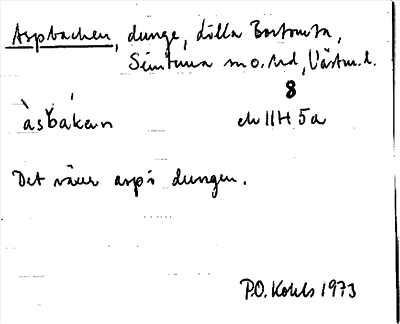 Aspbacken, dunge, Lilla Bortomta,
Simtuna sn o. hd, Västm. l.
8
àsbakan
ek 11H 5a
Det växer asp i dungen.
P.O. Kohls 1973